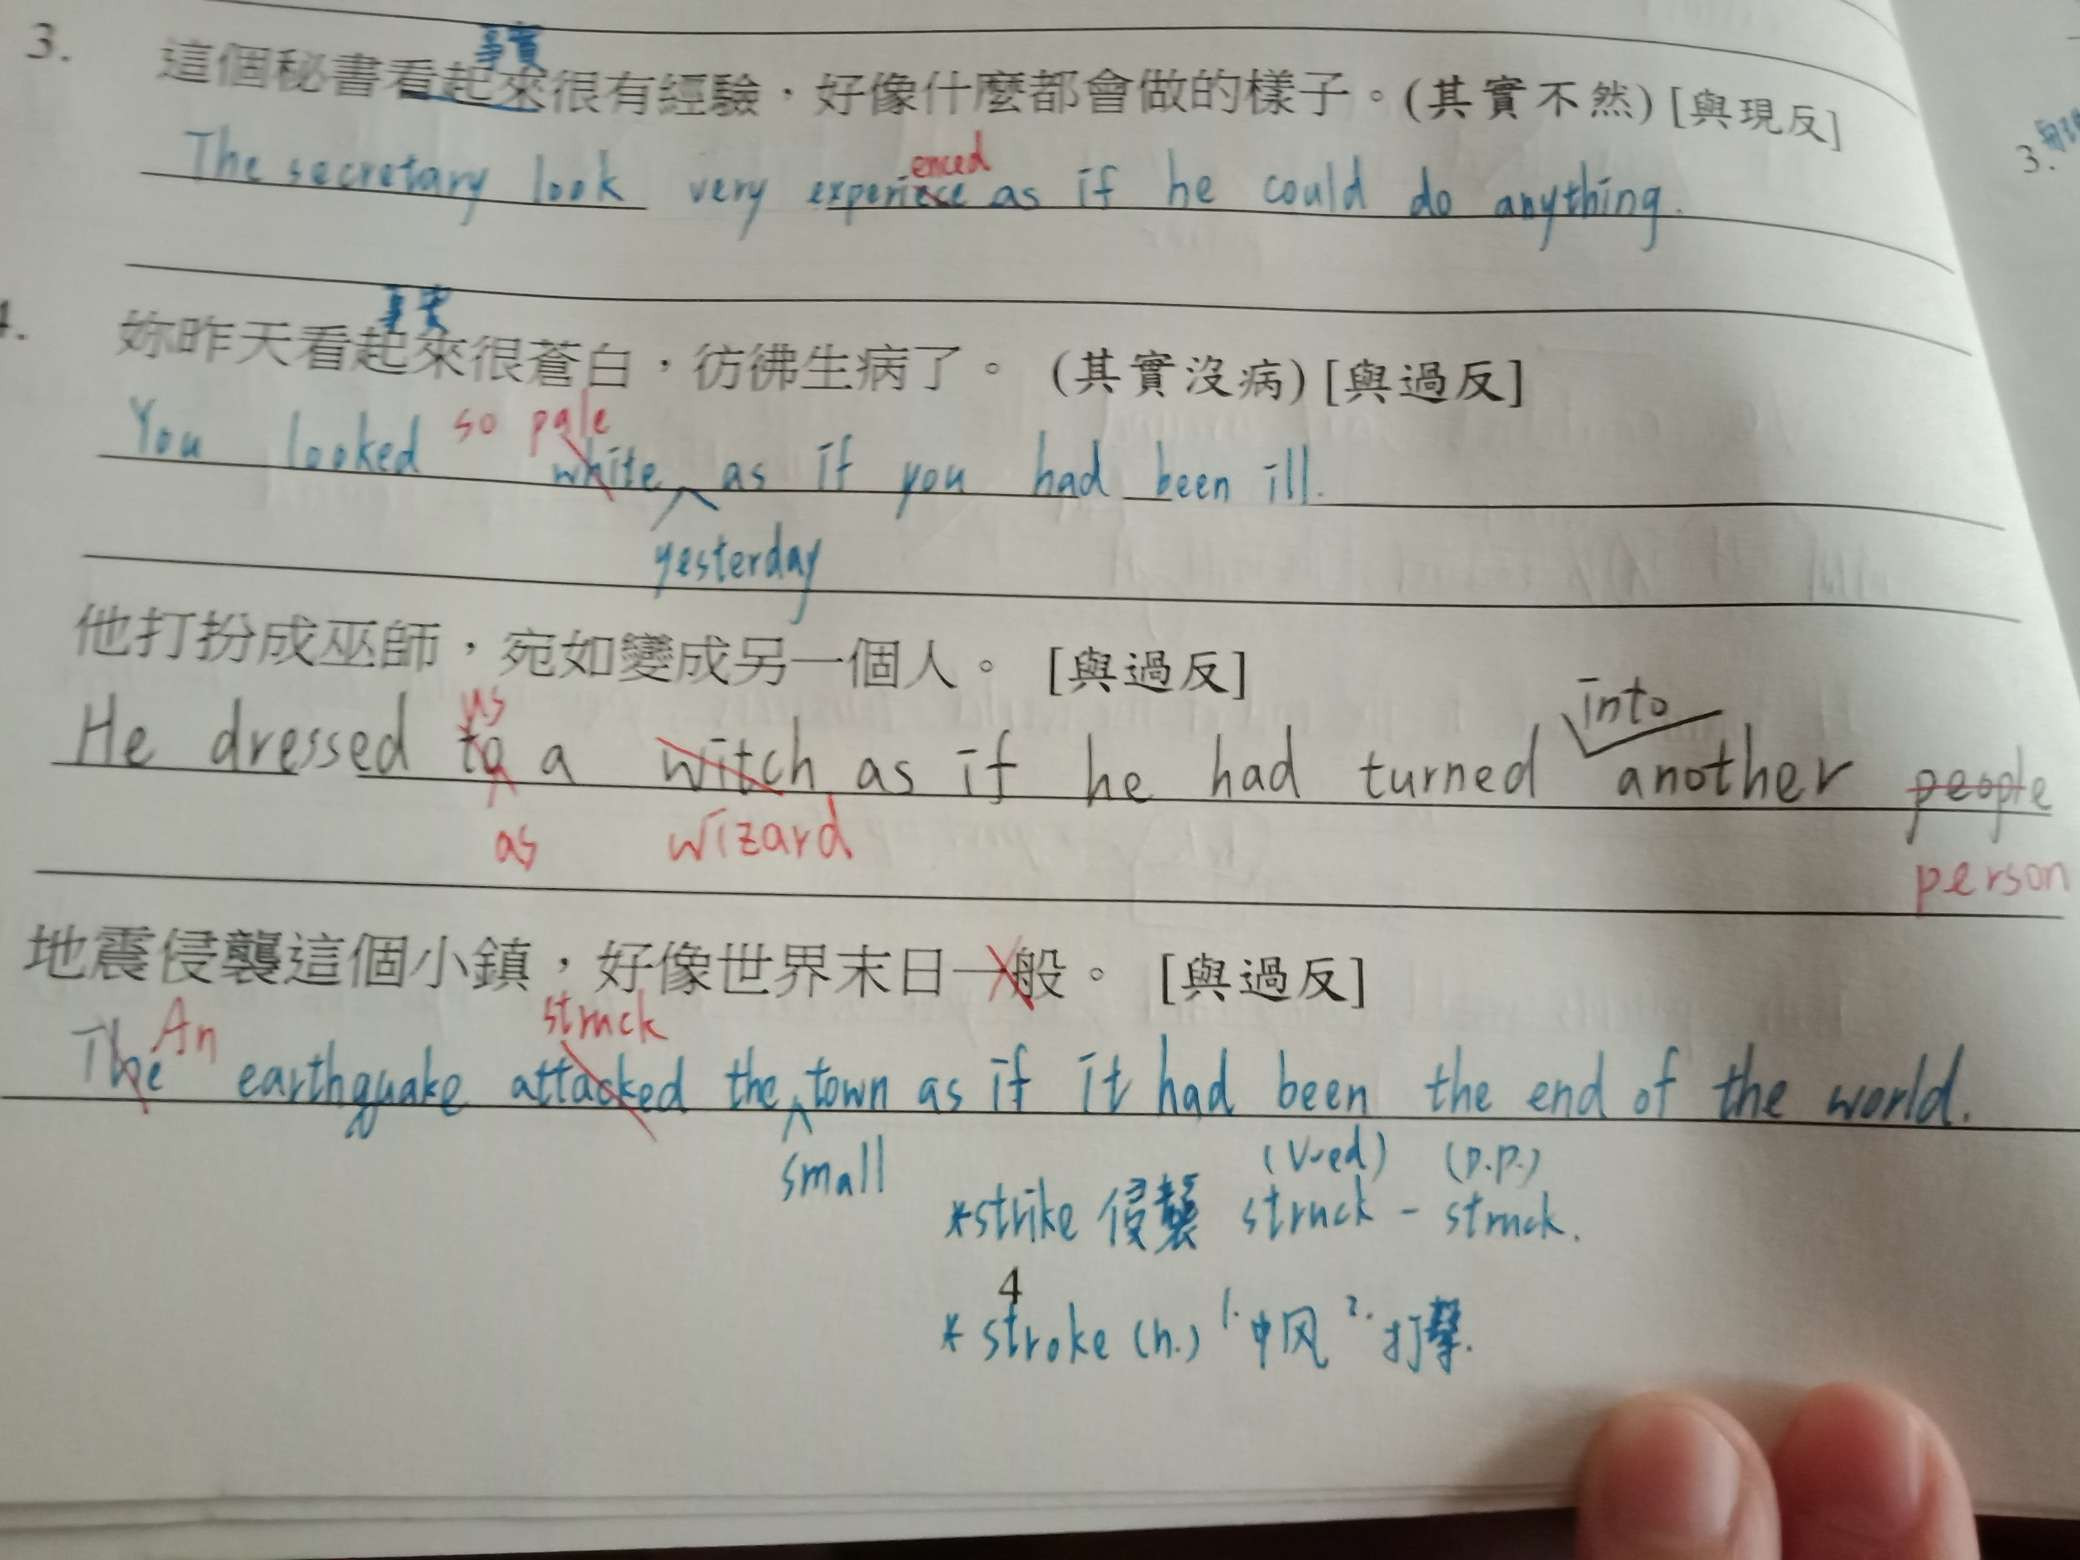 3.
事實
這個秘書看起來很有經驗，好像什麼都會做的樣子。(其實不然) [與現反]
enced
The secretary look very experiece as if he could do anything.
3.
事實
妳昨天看起來很蒼白，彷彿生病了。 (其實沒病) [與過反]
so pale
You looked white as if you had been ill.
yesterday
他打扮成巫師，宛如變成另一個人。 [與過反]
into
He dressed to a witch as if he had turned another people
as wizard person
地震侵襲這個小鎮，好像世界末日一般。 [與過反]
An struck
The earthquake attacked the town as if it had been the end of the world.
small
(V-ed) (p.p.)
*strike 侵襲 struck - struck.
4
* stroke (n.) 1. 中风 2. 打擊.